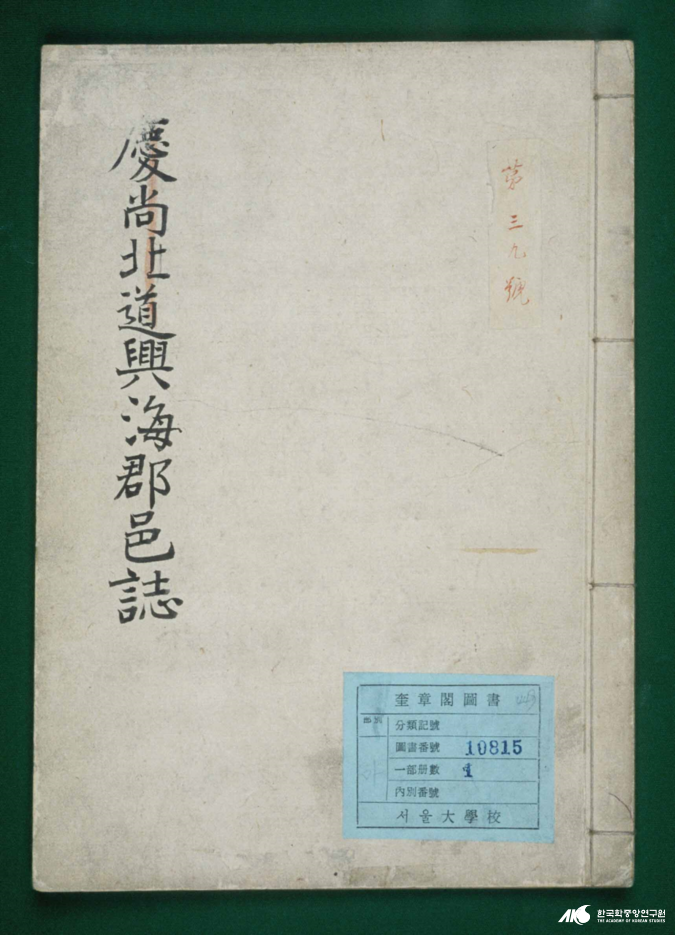 第三九號
慶尚北道興海郡邑誌
奎章閣圖書
分類記號
圖書番號 10815
一部册數 1
內別番號
서울大學校
한국학중앙연구원
THE ACADEMY OF KOREAN STUDIES